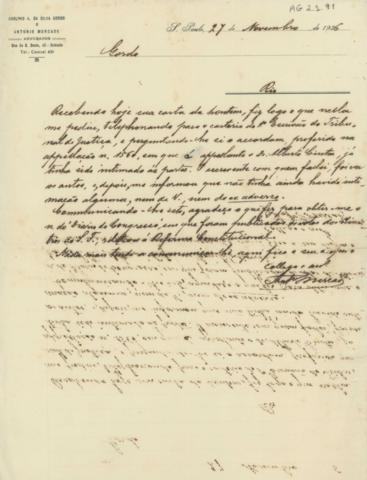 ADOLPHO A. DA SILVA GORDO
E
ANTONIO MERCADO
ADVOGADOS
Rua de S. Bento, 45 - Sobrado
Tel.: Central 420
AG 2.1.91
S. Paulo, 27 de Novembro de 1926
Gordo
Rio
Recebendo hoje sua carta de hontem, fiz logo o que nella
me pediu, telephonando para o cartorio do Escrivão do Tribu-
nal de Justiça, e perguntando-lhe si o accordam proferido na
appellação n. em que é appellante o Dr. Alberto já
tinha sido intimado às partes. O escrevente com quem fallei foi ver
os autos, e, depois, me informou que não tinha ainda havido inti-
mação alguma, nem de V., nem do ex-adverso.
Communicando-lhe isto, agradeço o que fez para obter-me o
n. do Diario do Congresso, em que foram publicados os votos dos minis-
tros do S. T., relativos á Reforma Constitucional.
Nada mais tendo a communicar-lhe, aqui fico o seu amigo e
collega e
Ant. Mercado